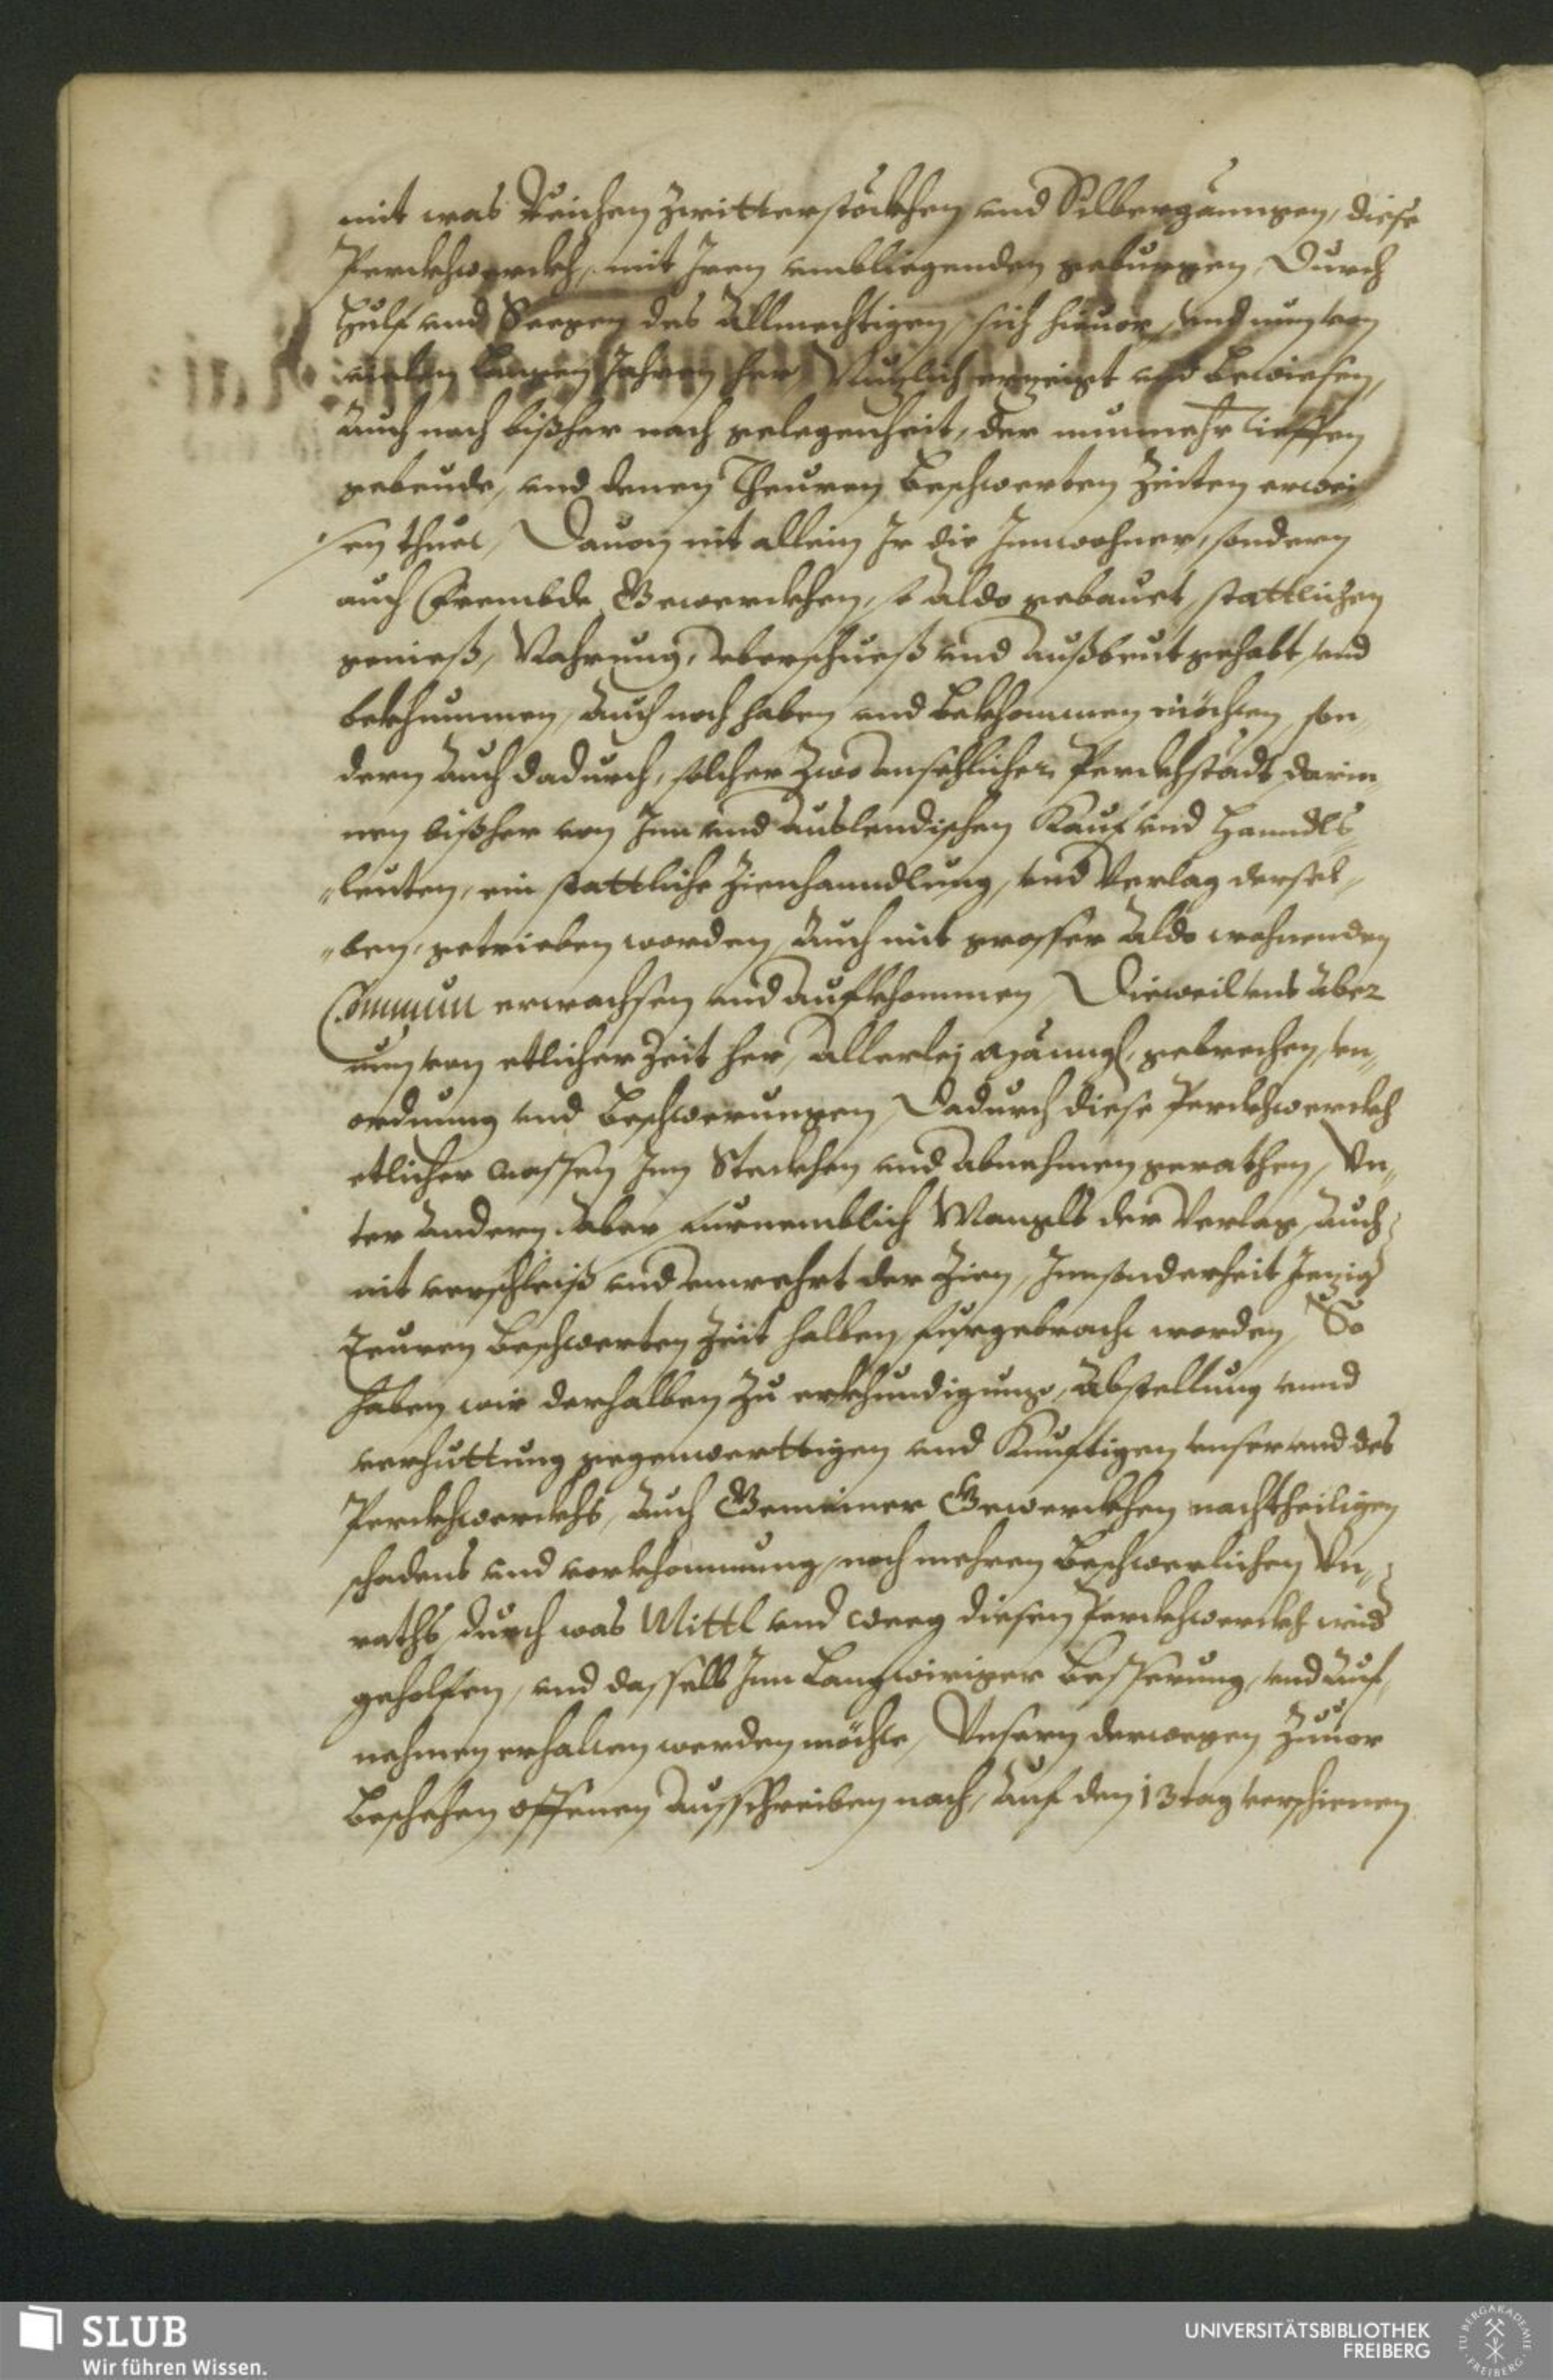 mit was Reichen Zwitterstöckhen vnd Silbergänngen, diese
Perckhwerckh, mit Iren vmbliegenden gebürgen, Durch
Hülf vnd Seegen des Allmechtigen, sich hieuor, vnd nun von
vielen Langen Jahren her, Nuzlich erzeigt vnd bewiesen,
Auch noch bißher nach gelegenheit, der nunmehr tieffen
gebeude, vnd denen Theuren beschwerten Zeiten erwei
sen thuet, Dauon nit allein Ir die Innwohner, sondern
auch Frembde Gewerckhen, so Aldo gebauet, stattlichen
genieß, Nahrung, vberschueß vnd außbeut gehabt, vnd
bekhummen, Auch noch haben vnd bekhommen möchten, son,
dern Auch dadurch, solcher Zwo ansehlicher Perckhstädt darin,
nen bißher von Inn vnd Auslendischen Kauf vnd Hanndls,
leuten, ein stattliche Zienhanndlung, vnd Verlag dersel,
ben, getrieben worden, Auch mit grosser Aldo wohnenden
Commun erwachsen vnd aufkhommen, Dieweil vns Aber
nun von etlicher Zeit her, Allerlej Männgl, gebrechen, vn,
ordnung vnd beschwerungen, Dadurch diese Perckhwerckh
etlicher massen Inn Steckhen vnd Abnehmen gerathen, Vn,
ter Andern Aber furnemblich Mangls der Verlag, Auch
nit verschleiß vnd vnwehrt der Zien, Innsonderheit Jezig
Teuren beschwerten Zeit halben, furgebracht worden, So
haben wir derhalben Zu erkhundigung, Abstellung vnnd
verhüttung gegenwerttigen vnd Künftigen vnser vnd des
Perckhwerckhs, Auch Gemeiner Gewerckhen nachtheiligen
schadens vnd vorkhommung, noch mehren beschwerlichen Vn,
raths, durch was Mittl vnd Weeg diesen Perckhwerckh wird
geholfen, vnd dasselb Inn Langwiriger besserung, vnd Auf,
nehmen erhalten werden möchte, Vnsern derwegen Zuuor
beschehen offenen Ausschreiben nach, Auf den 13 tag verschienen
SLUB
Wir führen Wissen.
UNIVERSITÄTSBIBLIOTHEK
FREIBERG
TU BERGAKADEMIE
FREIBERG